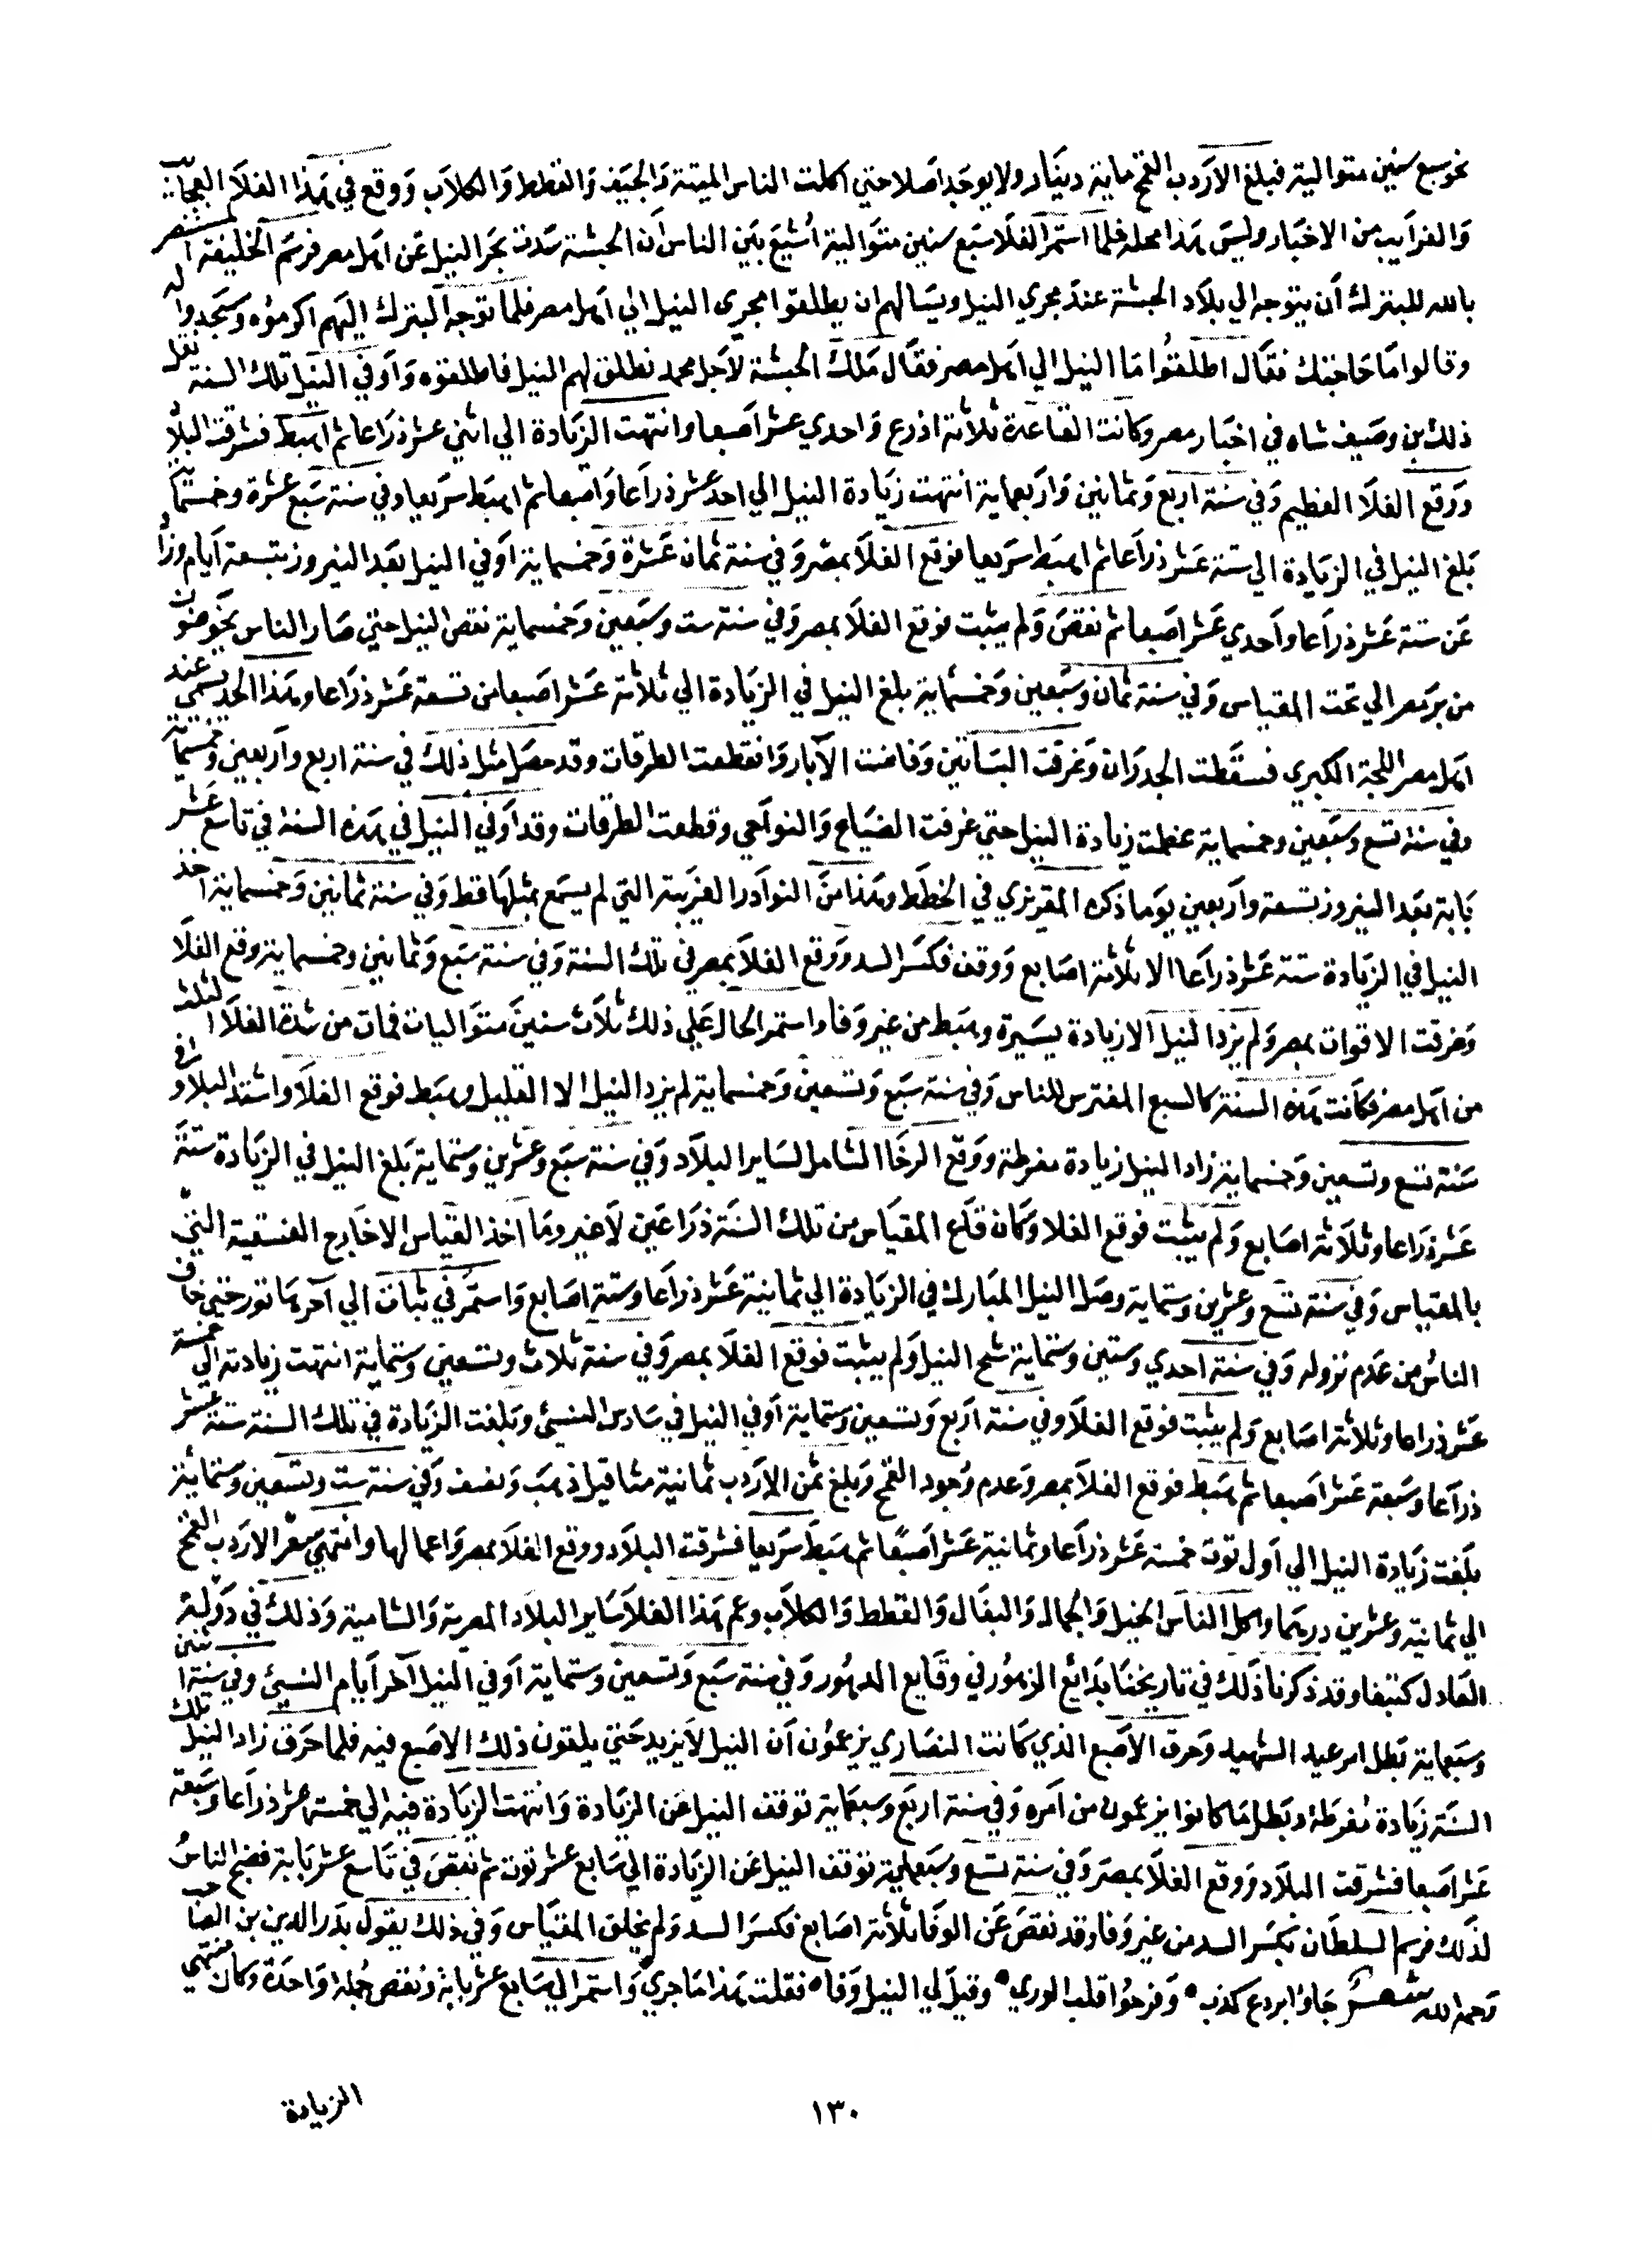 نحو سبع سنين متوالية فبلغ الاردب القمح ماية دينار ولا يوجد اصلا حتي اكلت الناس الميتة والجيف والقطط والكلاب ووقع في هذا الغلا العجايب
والغرايب من الاخبار وليس هذا محله فلما استمر الغلا سبع سنين متوالية اشيع بين الناس ان الحبشة سدت بحر النيل عن اهل مصر فرسم الخليفة المستنصر
بالله للبترك ان يتوجه الي بلاد الحبشة عند مجري النيل ويسالهم ان يطلقوا مجري النيل الي اهل مصر فلما توجه البترك اليهم اكرموه وسجدوا له
وقالوا ما حاجتك فقال اطلقوا ما النيل الي اهل مصر فقال ملك الحبشة لاجل محمد نطلق لهم النيل فاطلقوه واوفي النيل تلك السنة نقل
ذلك بن وصيف شاه في اخبار مصر وكانت القاعدة ثلاثة اذرع واحدي عشر اصبعا وانتهت الزيادة الي اثني عشر ذراعا ثم اهبط فشرقت البلاد
ووقع الغلا العظيم وفي سنة اربع وثمانين واربعماية انتهت زيادة النيل الي احد عشر ذراعا واصبعا ثم اهبط سريعا وفي سنة سبع عشرة وخمسماية
بلغ النيل في الزيادة الي ستة عشر ذراعا ثم اهبط سريعا فوقع الغلا بمصر وفي سنة ثمان عشرة وخمسماية اوفي النيل بعد النيروز بتسعة ايام وزاد
عن ستة عشر ذراعا واحدي عشر اصبعا ثم نقص ولم يثبت فوقع الغلا بمصر وفي سنة ست وسبعين وخمسماية نقص النيل حتي صار الناس يخوضون
من بر مصر الي تحت المقياس وفي سنة ثمان وسبعين وخمسماية بلغ النيل في الزيادة الي ثلاثة عشر اصبعا من تسعة عشر ذراعا وهذا الحد يسمي عند
اهل مصر اللجة الكبري فسقطت الجدران وغرقت البساتين وفاضت الآبار وانقطعت الطرقات وقد حصل مثل ذلك في سنة اربع واربعين وخمسماية
وفي سنة تسع وسبعين وخمسماية عظمت زيادة النيل حتي غرقت الضياع والنواحي وقطعت الطرقات وقد اوفي النيل في هذه السنة في تاسع عشر
بابة بعد النيروز بتسعة واربعين يوما ذكره المقريزي في الخطط وهذا من النوادر الغريبة التي لم يسمع بمثلها قط وفي سنة ثمانين وخمسماية اخذ
النيل في الزيادة ستة عشر ذراعا الا ثلاثة اصابع ووقف فكسر السد ووقع الغلا بمصر في تلك السنة وفي سنة سبع وثمانين وخمسماية وقع الغلا
وعزقت الاقوات بمصر ولم يزد النيل الا زيادة يسيرة وهبط من غير وفا واستمر الحال علي ذلك ثلاث سنين متواليات فمات من شدة الغلا الثلث
من اهل مصر فكانت هذه السنة كالسبع المفترس للناس وفي سنة سبع وتسعين وخمسماية لم يزد النيل الا القليل وهبط فوقع الغلا واشتد البلا وفي
سنة تسع وتسعين وخمسماية زاد النيل زيادة مفرطة ووقع الرخا الشامل لساير البلاد وفي سنة سبع وعشرين وستماية بلغ النيل في الزيادة ستة
عشر ذراعا وثلاثة اصابع ولم يثبت فوقع الغلا وكان قاع المقياس من تلك السنة ذراعين لا غير وما اخذ القياس الا خارج الفسقية التي
بالمقياس وفي سنة تسع وعشرين وستماية وصل النيل المبارك في الزيادة الي ثمانية عشر ذراعا وستة اصابع واستمر في ثبات الي آخر هاتور حتي خاف
الناس من عدم نزوله وفي سنة احدي وستين وستماية شح النيل ولم يثبت فوقع الغلا بمصر وفي سنة ثلاث وتسعين وستماية انتهت زيادته الي خمسة
عشر ذراعا وثلاثة اصابع ولم يثبت فوقع الغلا وفي سنة اربع وتسعين وستماية اوفي النيل في سادس النسيئ وبلغت الزيادة في تلك السنة ستة عشر
ذراعا وسبعة عشر اصبعا ثم هبط فوقع الغلا بمصر وعدم وجود القمح وبلغ ثمن الاردب ثمانية مثاقيل ذهب ونصف وفي سنة ست وتسعين وستماية
بلغت زيادة النيل الي اول توت خمسة عشر ذراعا وثمانية عشر اصبعا ثم هبط سريعا فشرقت البلاد ووقع الغلا بمصر واعمالها وانتهي سعر الاردب القمح
الي ثمانية وعشرين درهما واكل الناس الخيل والجمال والبغال والقطط والكلاب وعم هذا الغلا ساير البلاد المصرية والشامية وذلك في دولة
العادل كتبغا وقد ذكرنا ذلك في تاريخنا بدائع الزهور في وقايع الدهور وفي سنة سبع وتسعين وستماية اوفي النيل آخر ايام النسيئ وفي سنة اثنين
وسبعماية بطل امر عيد الشهيد وحرق الاصبع الذي كانت النصاري يزعمون ان النيل لا يزيد حتي يلقون ذلك الاصبع فيه فلما حرق زاد النيل تلك
السنة زيادة مفرطة وبطل ما كانوا يزعمون من امره وفي سنة اربع وسبعماية توقف النيل عن الزيادة وانتهت الزيادة فيه الي خمسة عشر ذراعا وسبعة
عشر اصبعا فشرقت البلاد ووقع الغلا بمصر وفي سنة تسع وسبعماية توقف النيل عن الزيادة الي سابع عشر توت ثم نقص في تاسع عشر بابة فضج الناس
لذلك فرسم السلطان بكسر السد من غير وفا وقد نقص عن الوفا ثلاثة اصابع فكسر السد ولم يخلق المقياس وفي ذلك يقول بدر الدين بن الصاحب
رحمه الله شعر جاؤا بردع كذب • وفرحوا قلب الوري • وقيل لي النيل وفا • فقلت هذا ما جري واستمر الي سابع عشر بابة ونقص جملة واحدة وكان منتهي
الزيادة
١٣٠